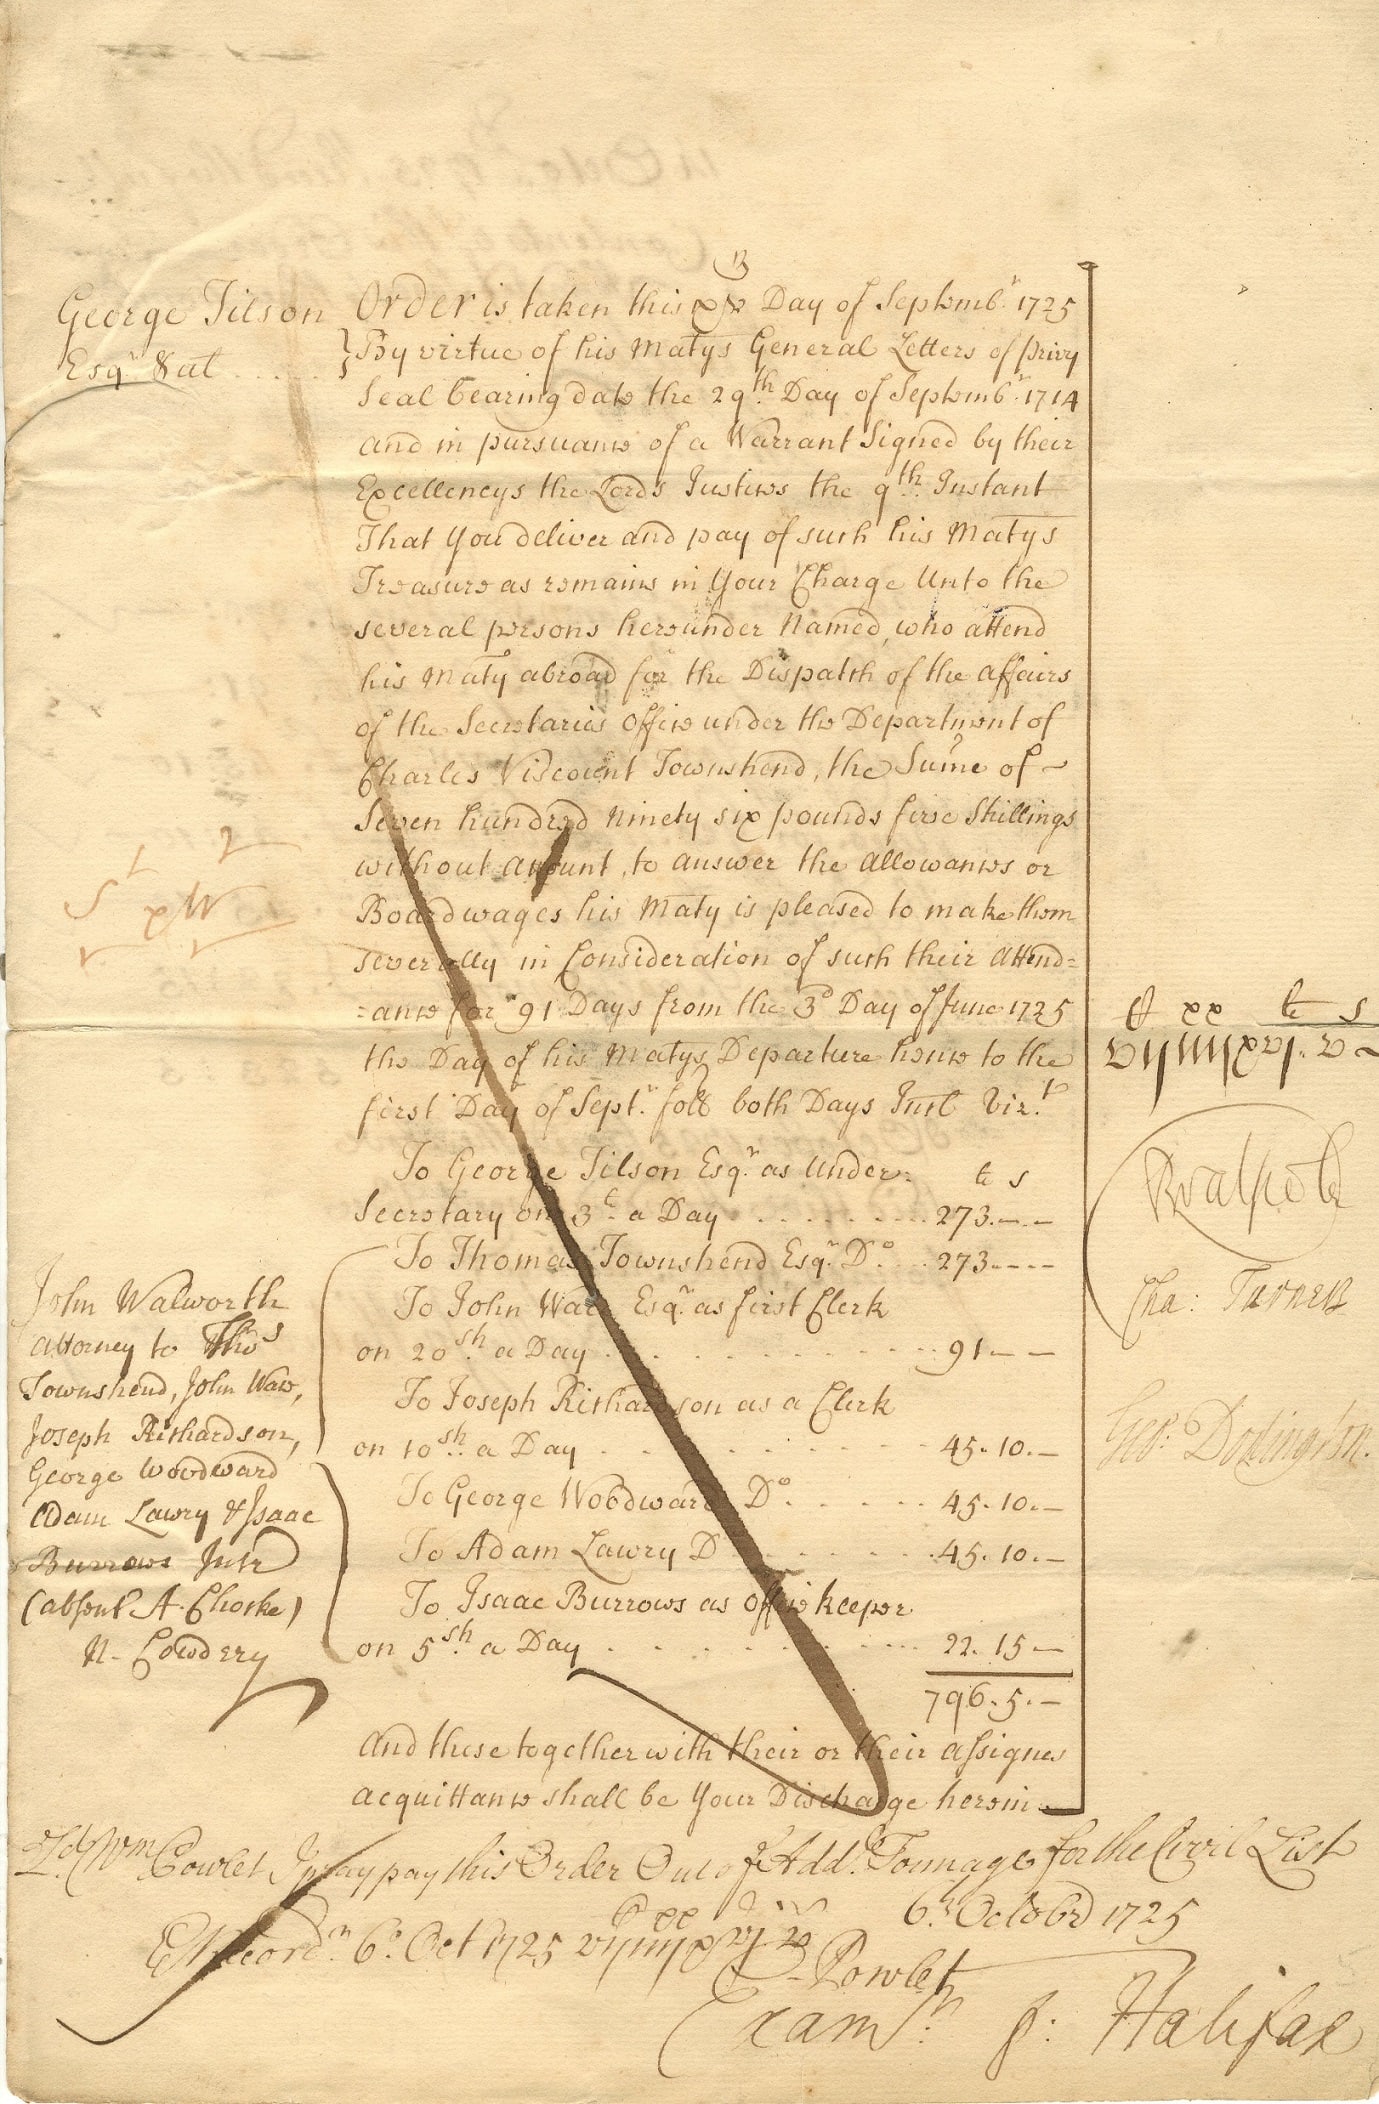 George Tilson
Esqr. & at
Order is taken this Day of Septembr. 1725
By virtue of his Matys General Letters of privy
Seal bearing date the 29th. Day of Septembr. 1714
and in pursuance of a Warrant Signed by their
Excellencys the Lords Justices the 9th. Instant
That You deliver and pay of such his Matys
Treasure as remains in Your Charge Unto the
several persons hereunder Named, who attend
his Maty abroad for the Dispatch of the affairs
of the Secretaries Office under the Department of
Charles Viscount Townshend, the Sume of
Seven hundred Ninety six pounds five Shillings
without Account, to answer the allowances or
Boardwages his Maty is pleased to make them
severally in Consideration of such their Attend=
=ance for 91 Days from the 3d Day of June 1725
the Day of his Matys Departure hence to the
first Day of Sept. foll both Days Incl Vizt.
To George Tilson Esqr. as Under= £ s
Secretary on 3£ a Day 273.—.—
To Thomas Townshend Esqr. Do. 273.—.—
To John Ware Esqr. as first Clerk
on 20sh. a Day 91.—.—
To Joseph Richardson as a Clerk
on 10sh. a Day 45.10.—
To George Woodward Do. 45.10.—
To Adam Lawry Do 45.10.—
To Isaac Burrows as Office keeper
on 5sh. a Day 22.15—
796.5.—
And these together with their or their assignes
acquittance shall be Your Discharge herein
John Walworth
attorney to Thos
Townshend, John Ware,
Joseph Richardson,
George Woodward
Adam Lawry & Isaac
Burrows Junr
(absent A. Choske)
N. Cowdery
RWalpole
Cha: Turner
Geo: Dodington.
Ld Wm Powlet I pray pay this Order Out of ye Addl. Tonnage for the Civil List
6th October 1725
Halifax
Record. 6o. Oct 1725
Powlet
Examr. J: